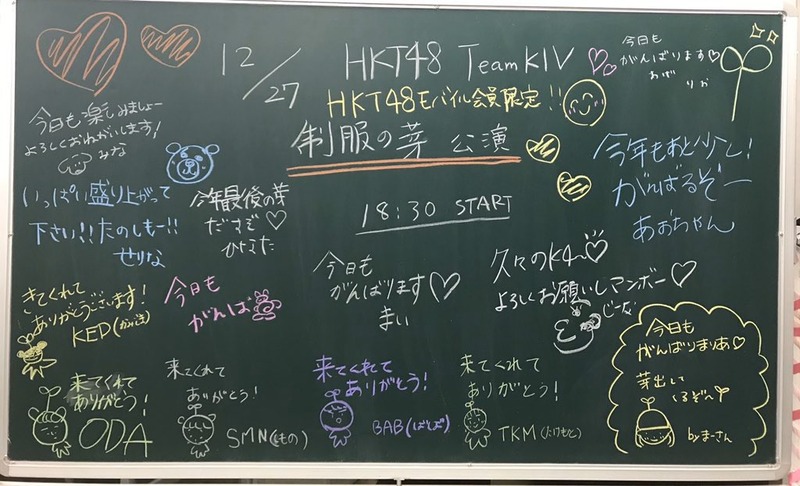 12/27
HKT48 TeamKIV
HKT48モバイル会員限定!!
制服の芽 公演
18:30 START
今日も
がんばります♡
おぜ りか
今日も楽しみましょー
よろしくおねがいします!
みな
いっぱい盛り上がって
下さい!!たのしもー!!
せりな
今年最後の芽
だすぞ♡
ひなた
今年もあと少し!
がんばるぞー
あおちゃん
きてくれて
ありがとうございます!
KED
今日も
がんば
今日も
がんばります♡
まい
久々のK4〜♡
よろしくお願いしマンボー♡
じーな
来てくれて
ありがとう!
ODA
来てくれて
ありがとう!
SMN(しもの)
来てくれて
ありがとう!
BAB(ばばだ)
来てくれて
ありがとう!
TKM(たけもと)
今日も
がんばりまりあ♡
芽出して
くるぞー
byまーさん